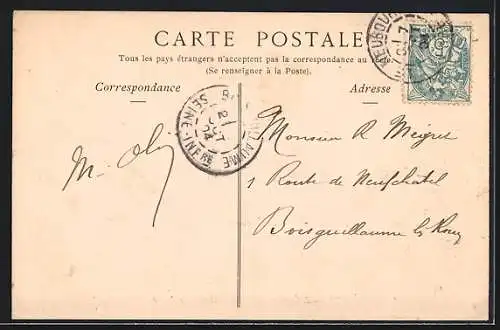 CARTE POSTALE
Tous les pays étrangers n'acceptent pas la correspondance au recto.
(Se renseigner à la Poste).
Correspondance
Adresse
NEUBOURG
SEINE-INFRE
Monsieur R Meigret
1 Route de Neufchatel
Boisguillaume lez Rouen